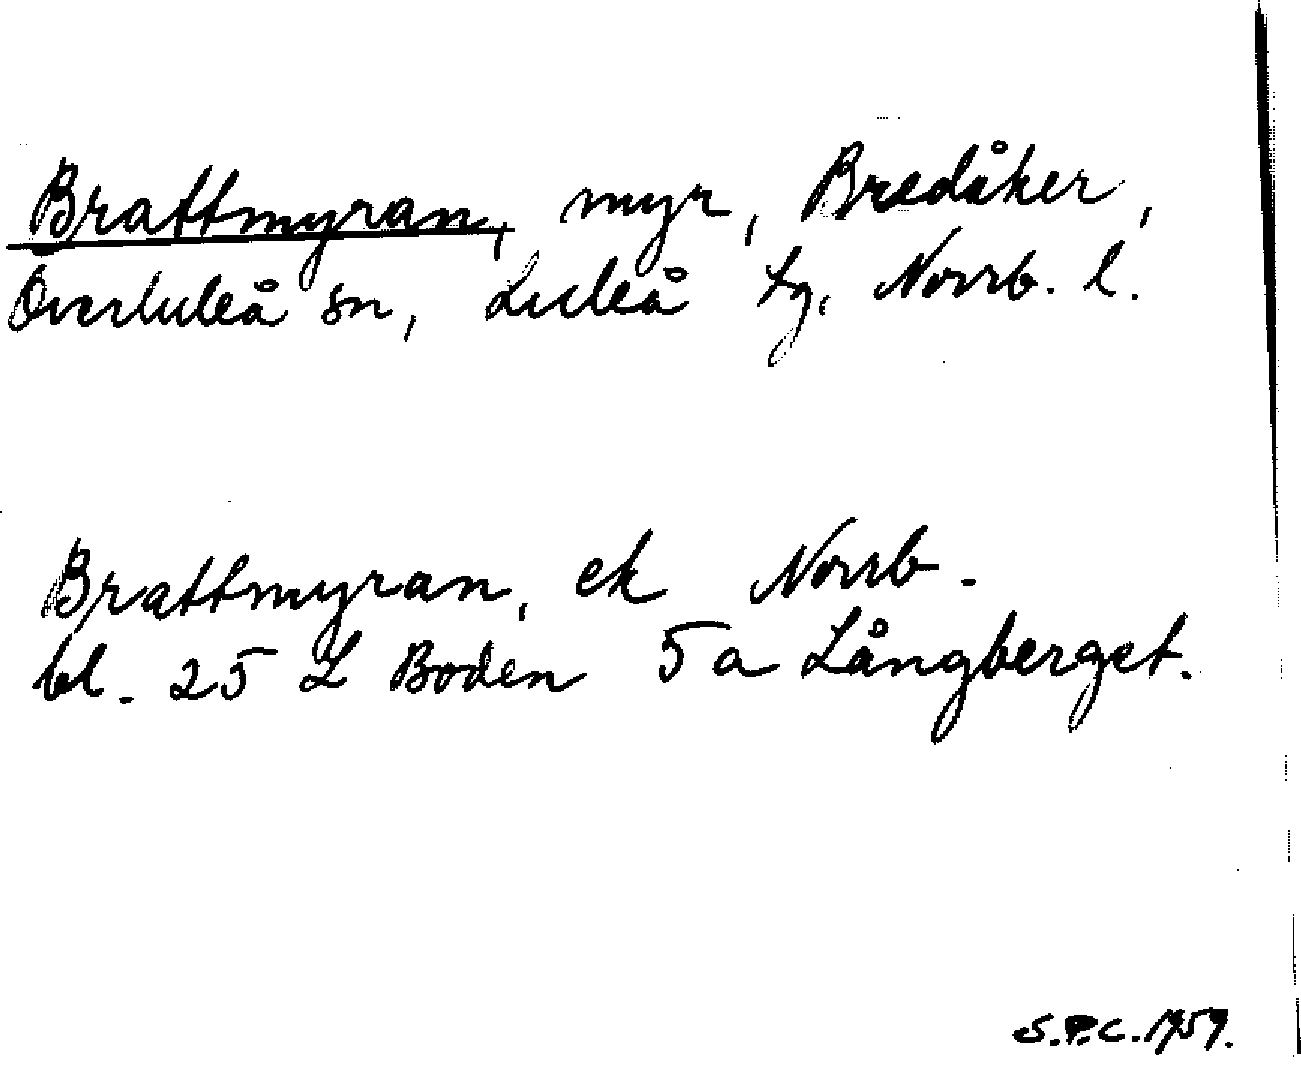 Brattmyran, myr, Bredåker,
Överluleå sn, Luleå tg, Norrb. l.
Brattmyran, ek Norrb.
bl. 25 L Boden 5 a Långberget.
S.P.C. 1959.